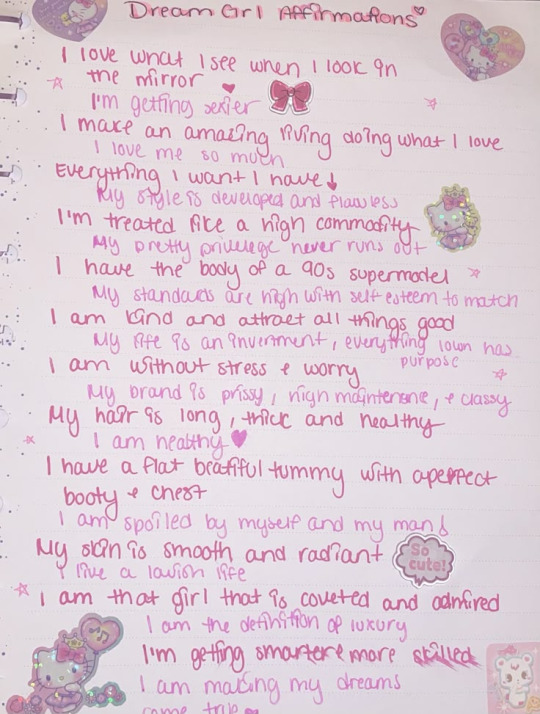 Dream Girl Affirmations
I love what I see when I look in
the mirror
I'm getting sexier
I make an amazing living doing what I love
I love me so much
Everything I want I have
My style is developed and flawless
I'm treated like a high commodity
My pretty privilege never runs out
I have the body of a 90s supermodel
My standards are high with self esteem to match
I am kind and attract all things good
My life is an inverment, everything I own has
purpose
I am without stress & worry
My brand is prissy, high maintenence, & classy
My hair is long, thick and healthy
I am healthy
I have a flat beatiful tummy with a perfect
booty & chest
I am spoiled by myself and my man!
My skin is smooth and radiant
So
cute!
I live a lavish life
I am that girl that is coveted and admired
I am the definition of luxury
I'm getting smarter & more skilled
I am making my dreams
come true